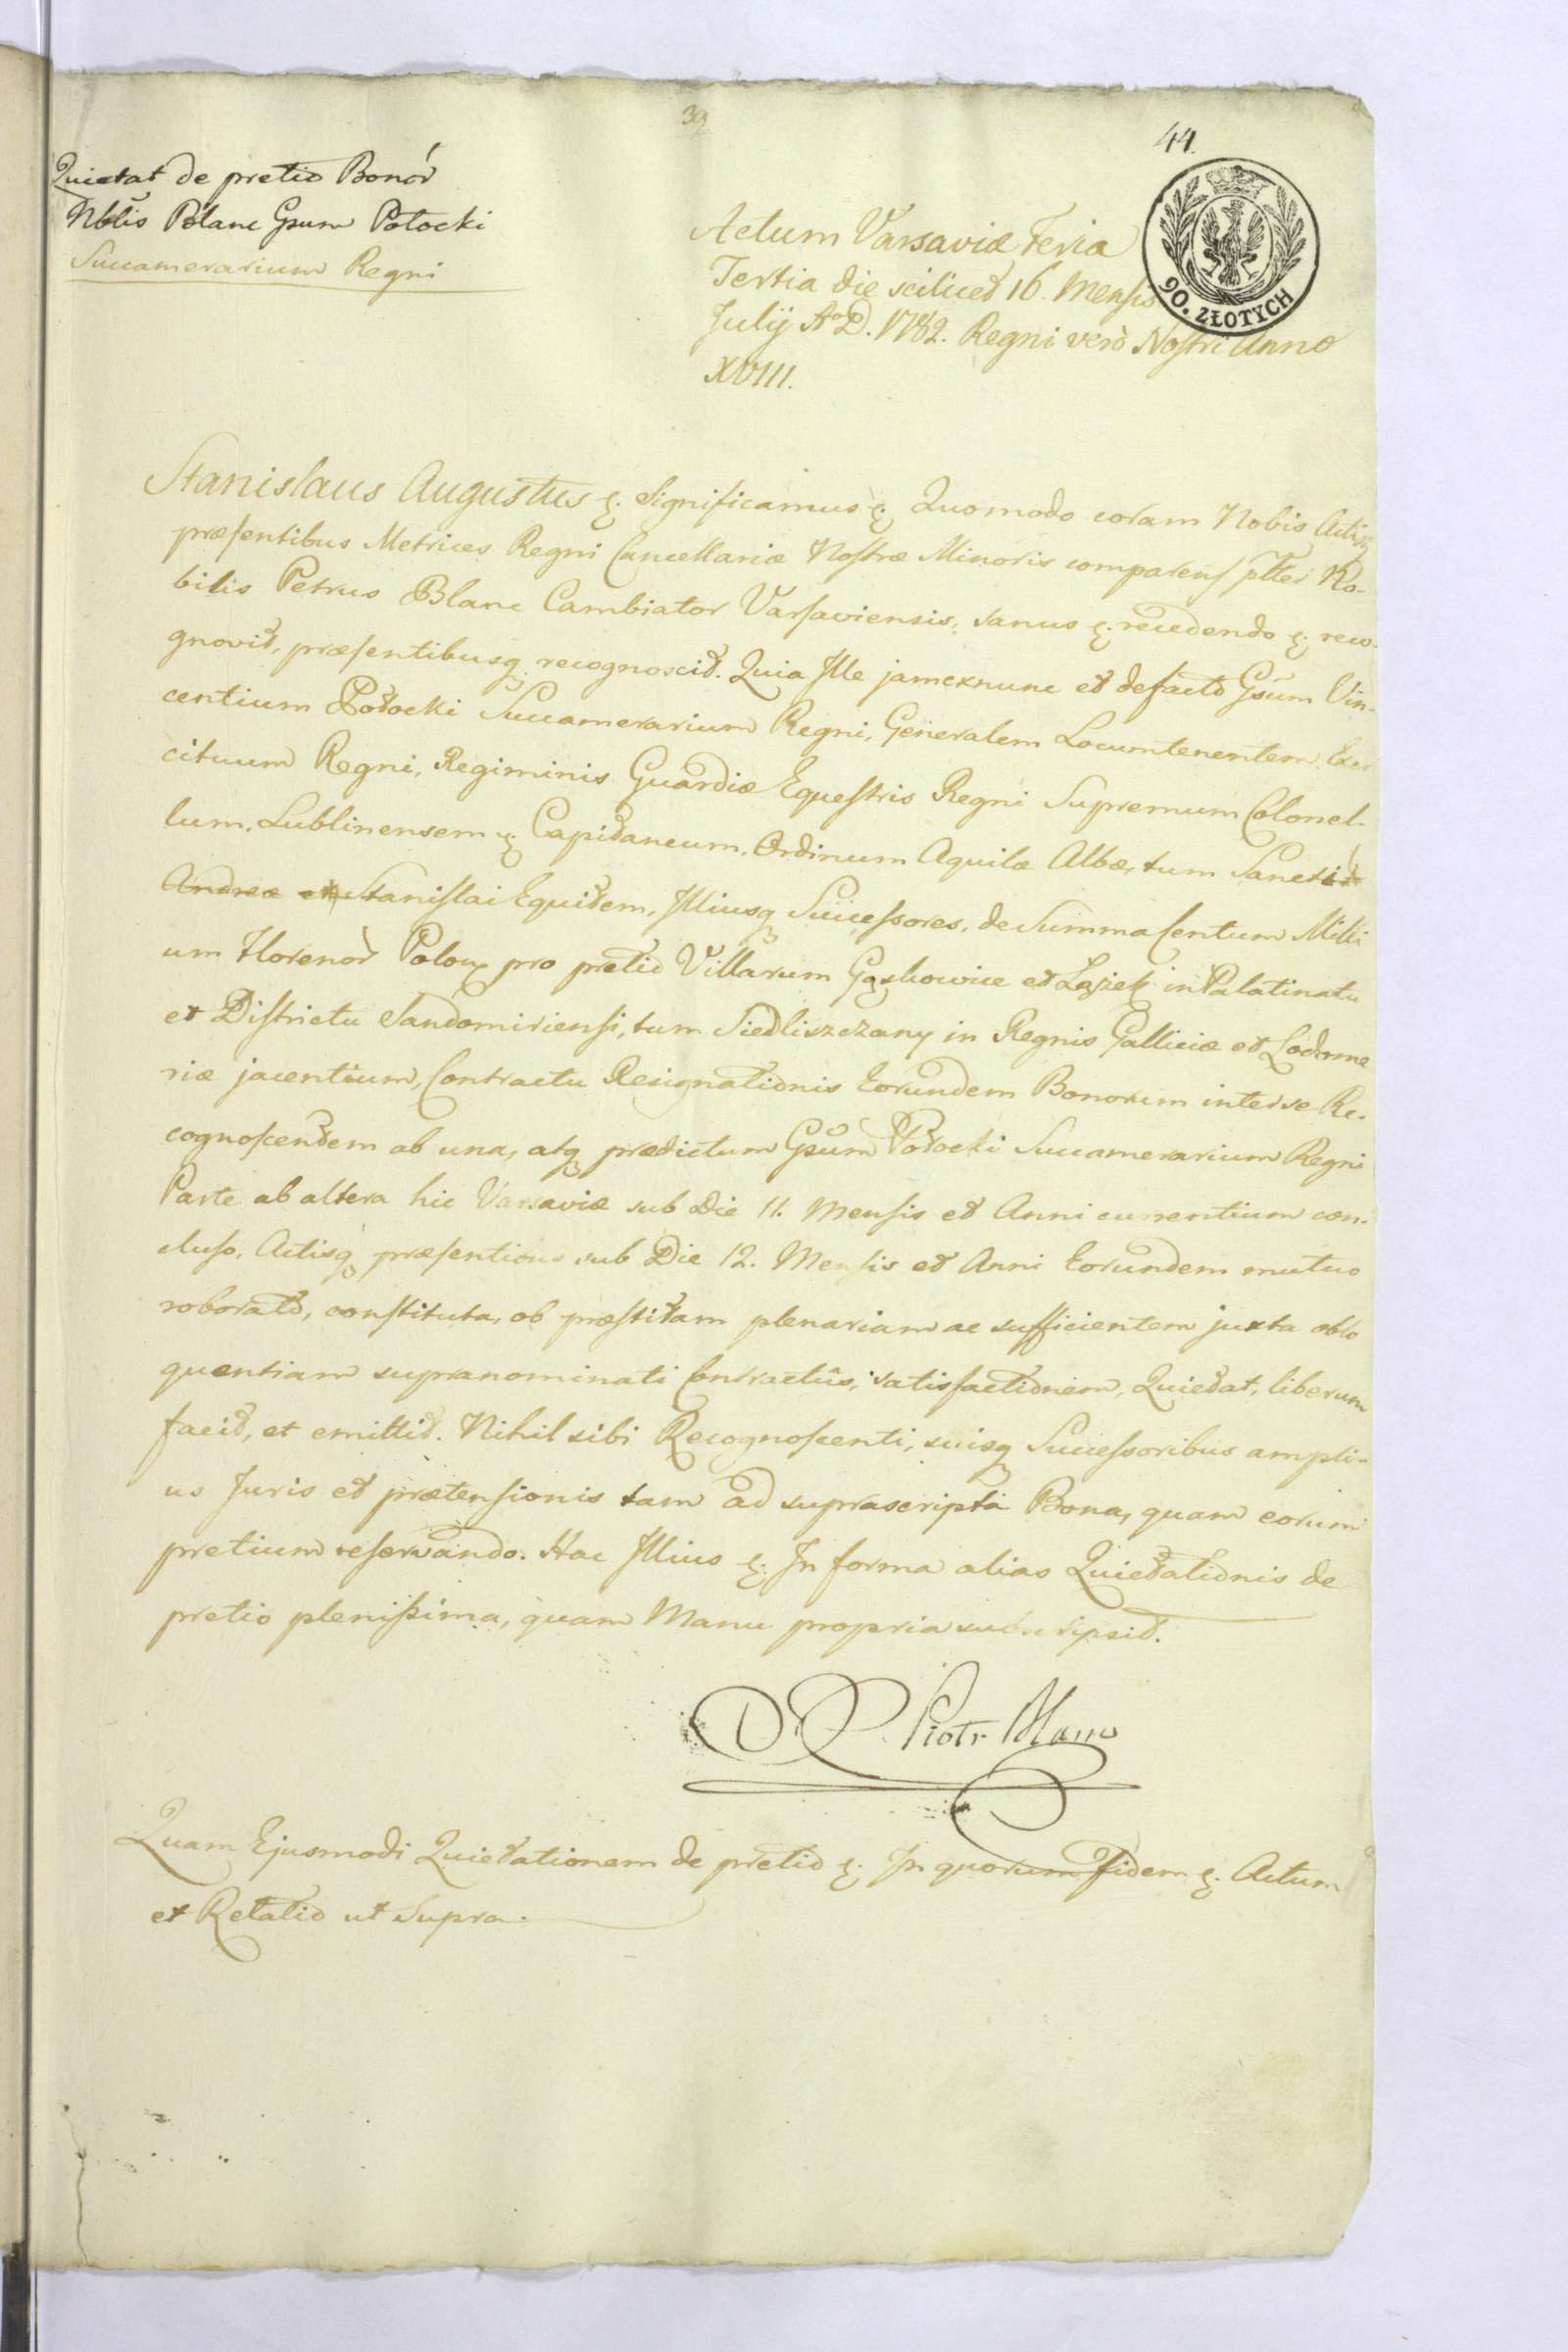 39
44.
Quietat de pretio Bonor̀
Nblis Blanc Gsum Potocki
Succamerarium Regni
90. ZŁOTYCH
Actum Varsaviæ Feria
Tertia die scilicet 16. Mensis
Julij A.o D. 1782. Regni verò Nostri Anno
XVIII.
Stanislaus Augustus &. Significamus &. Quomodo coram Nobis Actisq
præsentibus Metrices Regni Cancellariæ Nostræ Minoris comparens pltter No-
bilis Petrus Blanc Cambiator Varsaviensis, sanus &. recedendo &. reco-
gnovit, præsentibusq recognoscit. Quia Ille jamexnunc et defacto Gsum Vin-
centium Potocki Succamerarium Regni, Generalem Locumtenentem Exer
cituum Regni, Regiminis Guardiæ Equestris Regni Supremum Colonel-
lum, Lublinensem &. Capitaneum, Ordinum Aquilæ Albæ, tum Sancti
Andreæ et Stanislai Equitem, Illiusq Successores, de Summa Centum Milli
um Florenor̀ Polon pro pretio Villarum Gąskowice et Łążek in Palatinatu
et Districtu Sandomiriensi, tum Siedliszczany in Regnis Galliciæ et Lodome
riæ jacentium, Contractu Resignationis Eorundem Bonorum inter se Re-
cognoscentem ab una, atq prædictum Gsum Potocki Succamerarium Regni
Parte ab altera hic Varsaviæ sub Die 11. Mensis et Anni currentium con-
cluso, Actisq præsentibus sub Die 12. Mensis et Anni Eorundem mutuo
roborato, constituta, ob præstitam plenariam ac sufficientem juxta oblo
quentiam supranominati Contractûs, satisfactionem, Quietat, liberum
facit, et emittit. Nihil sibi Recognoscenti, suisq Successoribus ampli-
us Juris et prætensionis tam ad suprascripta Bona, quam eorum
pretium reservando. Hac Illius &. In forma alias Quietationis de
pretio plenissima, quam Manu propria subscripsit.
Piotr Blanc
Quam Ejusmodi Quietationem de pretio &. In quorum Fidem &. Actum
et Relatio ut Supra.